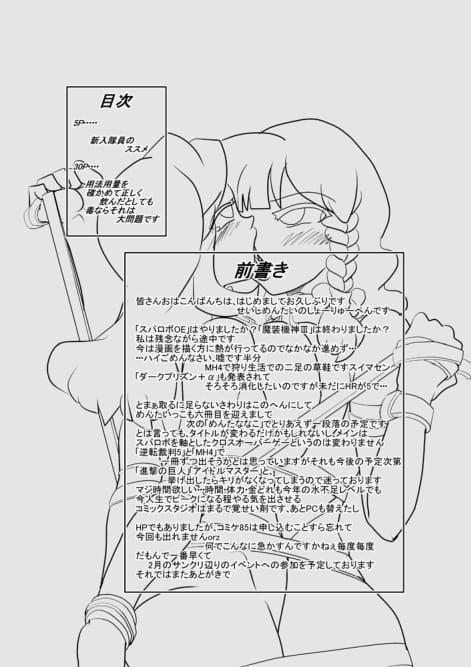 目次
5P‥‥‥
新入隊員の
ススメ
30P‥‥
用法用量を
確かめて正しく
飲んだとしても
毒ならそれは
大問題です
前書き
皆さんおはこんばんちは、はじめましてお久しぶりです
せいしめんたいのしょーりゅーへんです
「スパロボOE」はやりましたか？「魔装機神Ⅲ」は終わりましたか？
私は残念ながら途中です
今は漫画を描く方に熱が行ってるのでなかなか進めず…
…ハイごめんなさい、嘘です半分
MH4で狩り生活での二足の草鞋ですスイマセン
「ダークプリズン＋α」も発表されて
そろそろ消化したいのですが未だにHRが5で…
とまぁ取るに足らないさわりはこのへんにして
めんたいっこも六冊目を迎えまして
次の「めんたななこ」でとりあえず一段落の予定です
とは言っても、タイトルが変わるだけかもしれないし、メインは
スパロボを軸としたクロスオーバーゲーというのは変わりません
「逆転裁判5」と「MH4」で
一冊ずつ出そうかとは思っていますがそれも今後の予定次第
「進撃の巨人」「アイドルマスター」と、
挙げ出したらキリがなくなってしまうので迷っております
マジ時間欲しい…時間・体力・金どれも今年の水不足レベルでも
今人生でピークになる程やる気を出させる
コミックスタジオはまるで覚せい剤です、あとPCも替えたし
HPでもありましたが、コミケ85は申し込むことすら忘れて
今回も出れませんorz
何でこんなに急かすんですかねぇ毎度毎度
だもんで一番早くて
2月のサンクリ辺りのイベントへの参加を予定しております
それではまたあとがきで